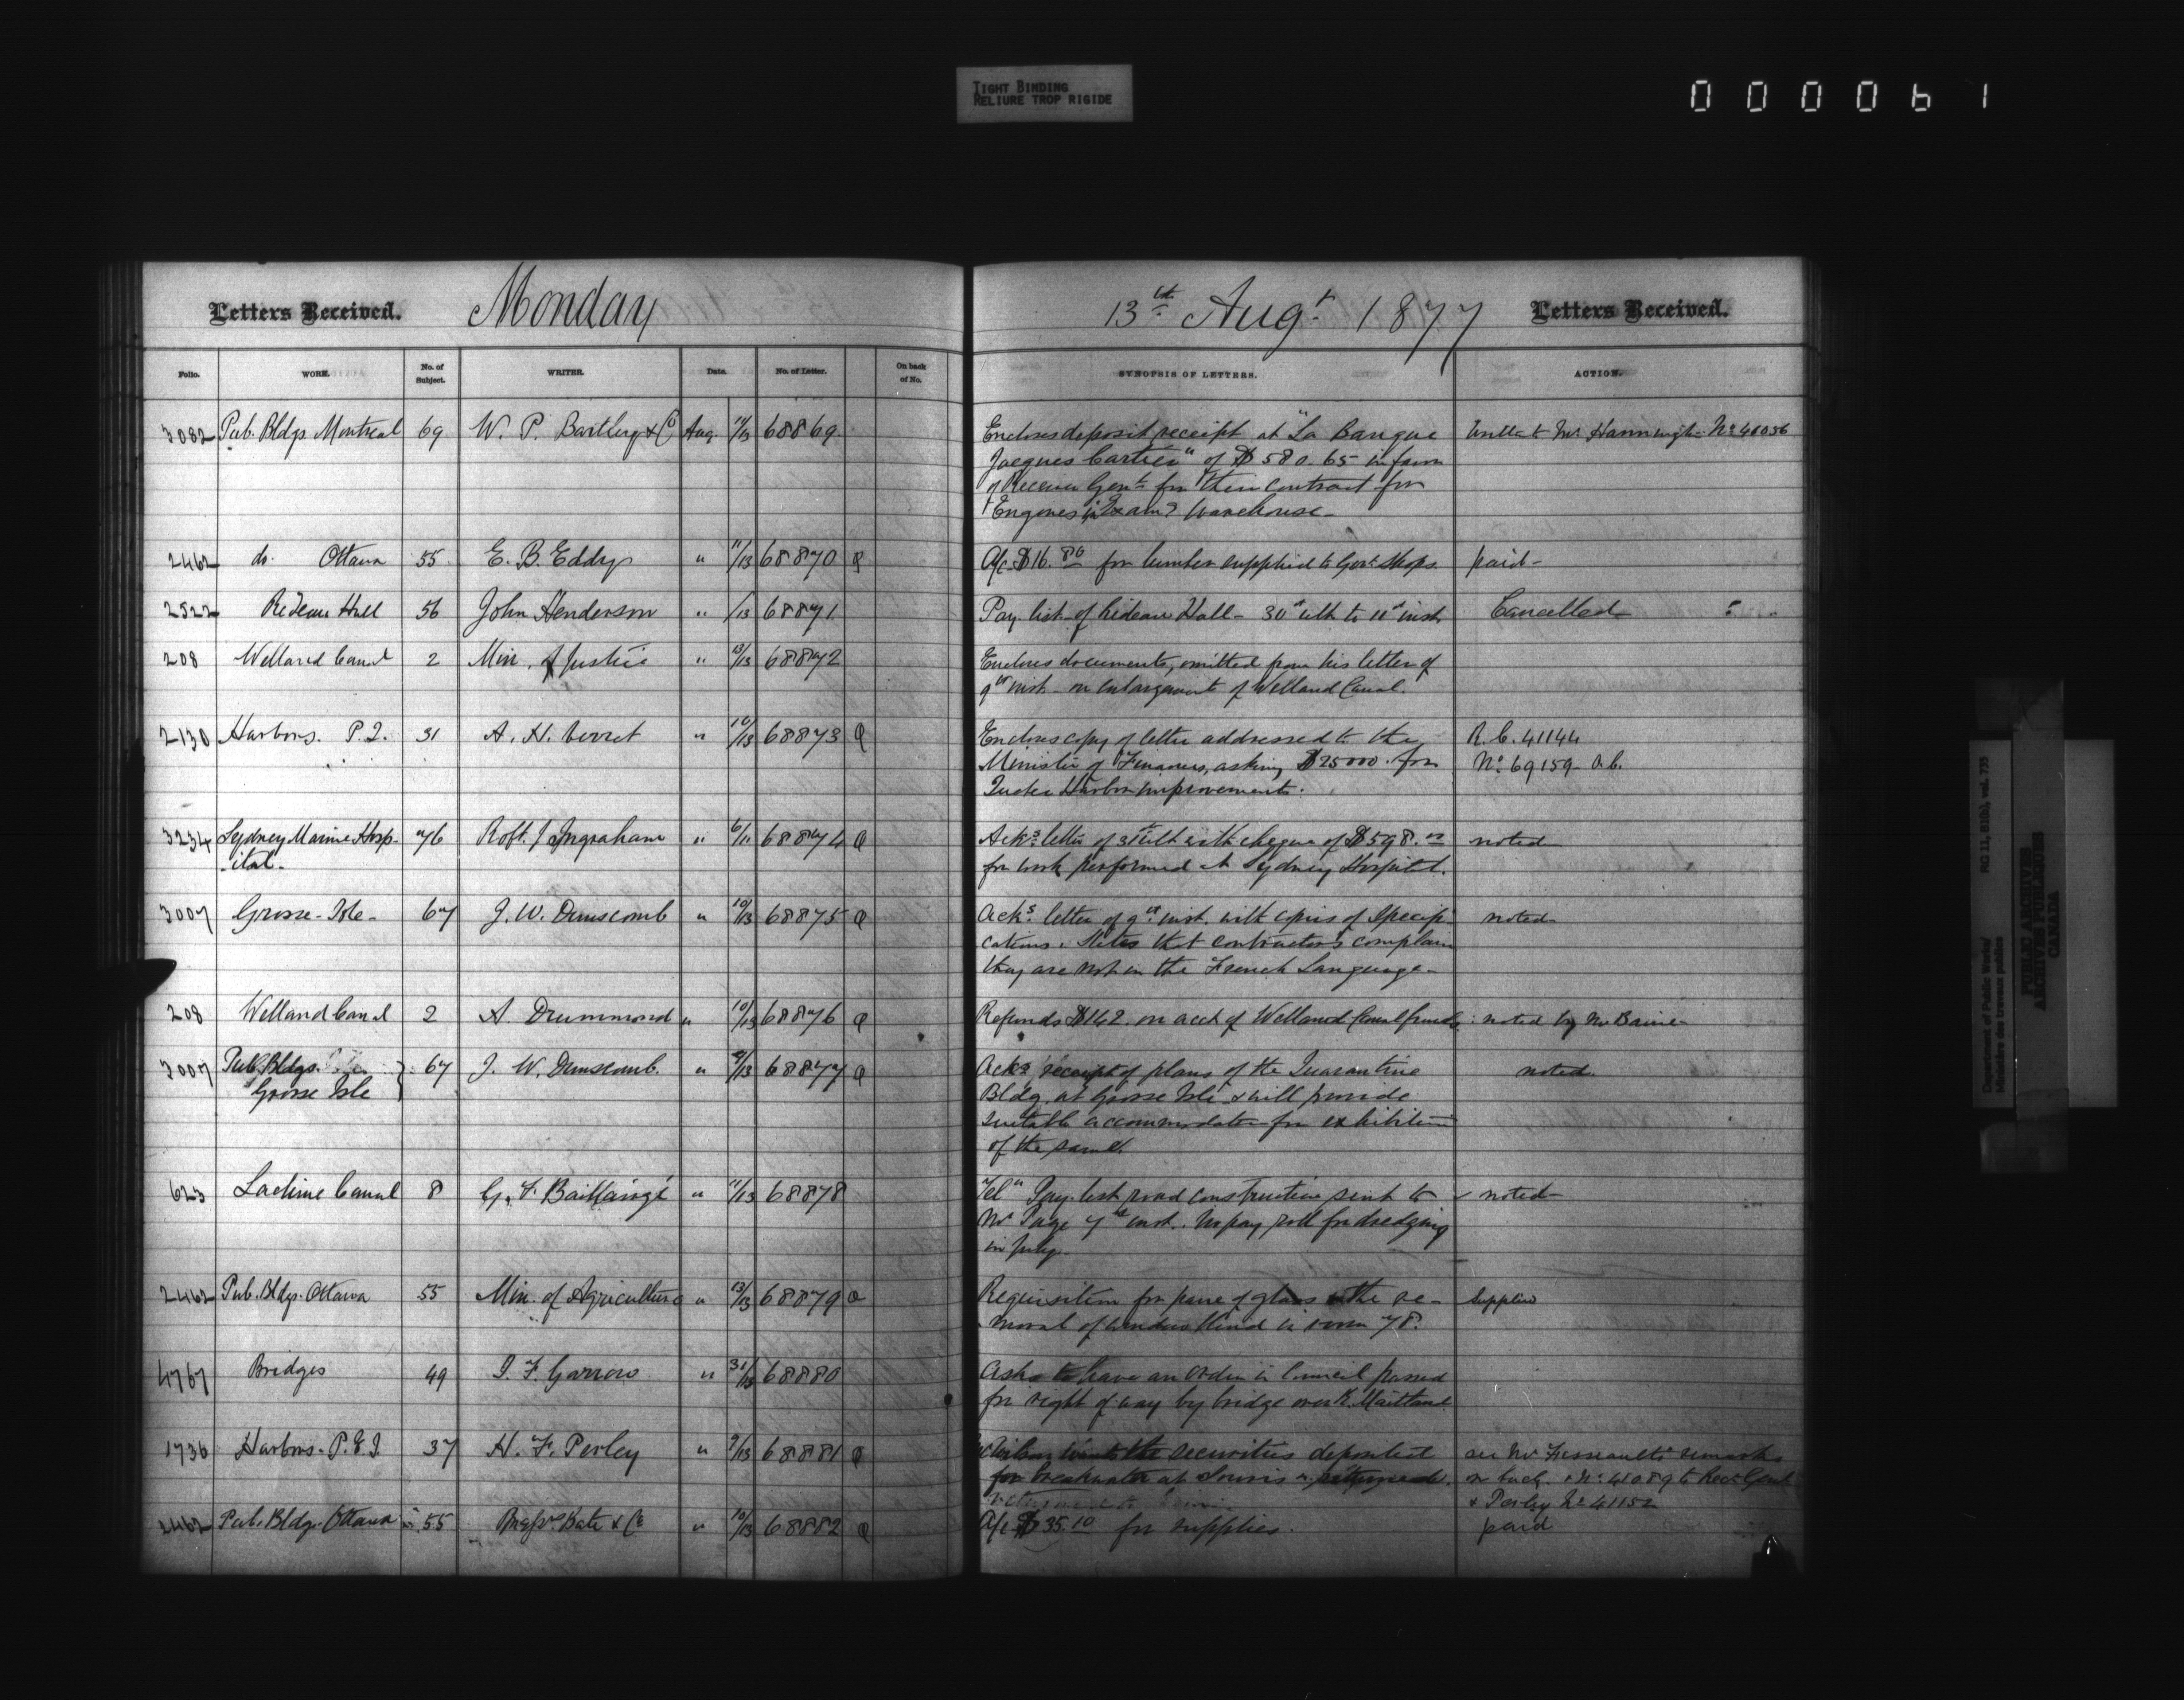 TIGHT BINDING
RELIURE TROP RIGIDE
000061
Letters Received. Monday 13th Augt 1877 Letters Received.
Folio. WORK. No. of Subject. WRITER. Date. No. of Letter. On back of No. SYNOPSIS OF LETTERS. ACTION.
3082 Pub. Bldgs. Montreal 69 W. P. Bartley & Co Aug. 11/13 68869 Encloses deposit receipt at "La Banque Wrote to Mr. Hannington No 41036
Jacques Cartier" of $580.65 in favor
of Receiver Genl. for their contract for
Engines in Exam? Warehouse -
2462 do. Ottawa 55 E. B. Eddy " 11/13 68870 Q A/c $16.80 for lumber supplied to Govt. Shops. paid -
2522 Rideau Hall 56 John Henderson " /13 68871 Pay list of Rideau Hall - 30th ulto to 11th inst. Cancelled
208 Welland Canal 2 Min. of Justice " 13/13 68872 Encloses documents, omitted from his letter of
9th inst. on enlargement of Welland Canal.
2130 Harbors. P.Q. 31 A. H. Verret " 10/13 68873 Q Encloses copy of letter addressed to the R.C. 41144
Minister of Finances, asking $25000 for No 69159 -
Quebec Harbor improvements.
3234 Sydney Marine Hosp- 76 Robt. J Ingraham " 6/11 68874 Q Acks letter of 31st ulto with cheque of $598. noted
-ital- for work performed at Sydney Hospital.
3007 Grosse-Isle- 67 J. W. Dunscomb " 10/13 68875 Q Acks. letter of 9th inst. with copies of Specifi- noted-
cations. States that contractors complain
they are not in the French Language -
208 Welland Canal 2 A. Drummond " 10/13 68876 Q Refunds $142. on acct of Welland Canal funds. noted by Mr Baine -
3007 Pub. Bldgs. 67 J. W. Dunscomb. " 9/13 68877 Q Acks receipt of plans of the Quarantine noted.
Grosse Isle Bldg. at Grosse Isle & will provide
suitable accommodation for exhibition
of the same.
623 Lachine Canal 8 G. F. Baillairgé " 11/13 68878 "Tel" Pay-list road construction sent to noted-
Mr Page 7th inst. No pay roll for dredging
in July.
2462 Pub. Bldgs. Ottawa 55 Min. of Agriculture " 13/13 68879 Q Requisition for pane of glass & the re- Supplied
moval of window blind in room 78.
4767 Bridges 49 J. F. Garrow " 31/13 68880 Asks to have an Order in Council passed
for right of way by bridge over R. Maitland
1736 Harbors. P.E.I 37 H. F. Perley " 9/13 68881 Q the securities deposited see Mr remarks
for breakwater at Souris returned. on back. & No 41089 to Recr Genl
& Perley No 41152
2462 Pub. Bldgs. Ottawa 55 Bate & Co " 10/13 68882 Q A/c $35.10 for supplies. paid
Department of Public Works/
Ministère des travaux publics
RG 11, B1(b), vol. 755
PUBLIC ARCHIVES
ARCHIVES PUBLIQUES
CANADA